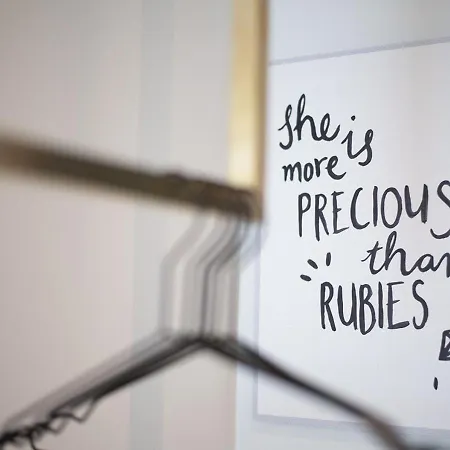 she is
more
PRECIOUS
than
RUBIES